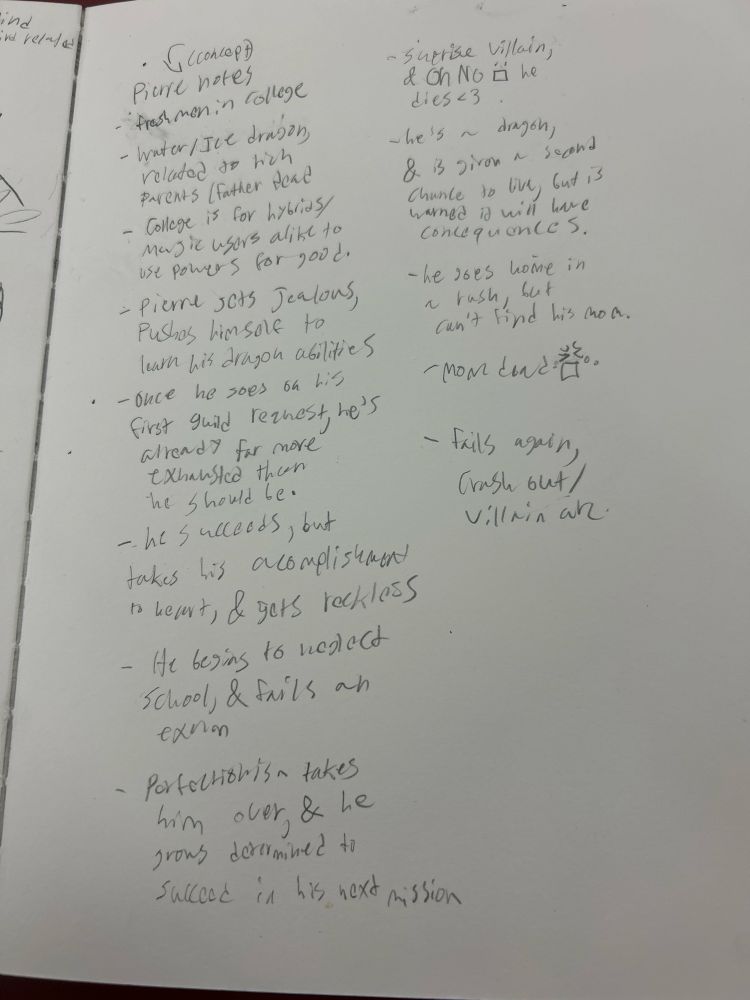 ind
ird related
(concept)
Pierre notes
- freshmen in college
- water/Ice dragon,
related to rich
parents (father dead
- College is for hybrids/
magic users alike to
use powers for good.
- Pierre gets jealous,
Pushes himself to
learn his dragon abilities
- once he goes on his
first guild request, he's
already far more
exhausted than
he should be.
- he succeeds, but
takes his acomplishment
to heart, & gets reckless
- He begins to neglect
school, & fails an
exam
- Perfectionism takes
him over, & he
grows determined to
succeed in his next mission
- suprise villain,
& Oh No he
dies <3.
- he's a dragon,
& is given a second
chance to live, but is
warned it will have
concequences.
- he goes home in
a rush, but
can't find his mom.
- mom dead.
- fails again,
Crash out/
Villain arc.